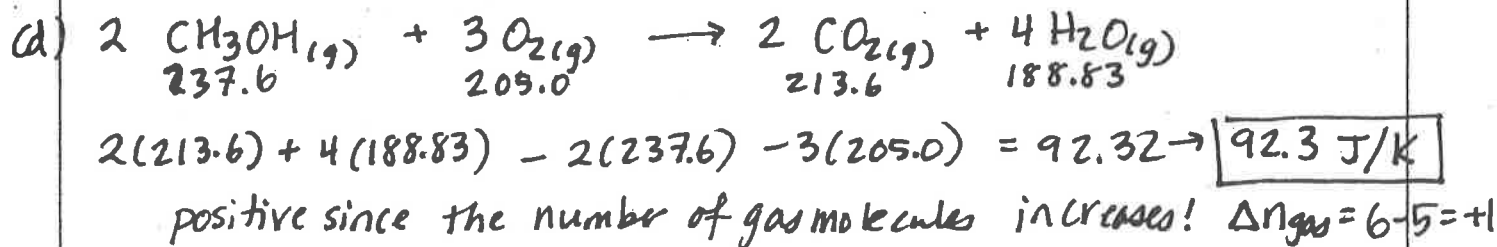 (d) 2 CH3OH(g) + 3 O2(g) → 2 CO2(g) + 4 H2O(g)
237.6 205.0 213.6 188.83
2(213.6) + 4(188.83) - 2(237.6) - 3(205.0) = 92.32 → 92.3 J/K
positive since the number of gas molecules increases! Δngas = 6-5 = +1